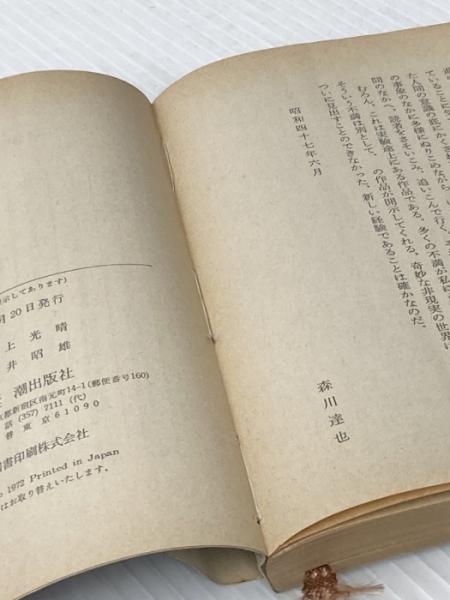 ていることに
た人間の意識の底にかくされ
の事象のなかに多様にぬりこめながら、
間のなかへ、読者をさそいこみ、追いこんで行く。
むろん、これは実験途上にある作品である。多くの不満が私に
そういう不満は別として、の作品が開示してくれる。奇妙な非現実の世界は
ついに見出すことのできなかった、新しい経験であることは確かなのだ。
昭和四十七年六月
森川達也
示してあります)
月20日発行
上光晴
井昭雄
潮出版社
都新宿区南元町14-1(郵便番号160)
話(357)7111(代)
替東京61090
書印刷株式会社
1972 Printed in Japan
はお取り替えいたします。